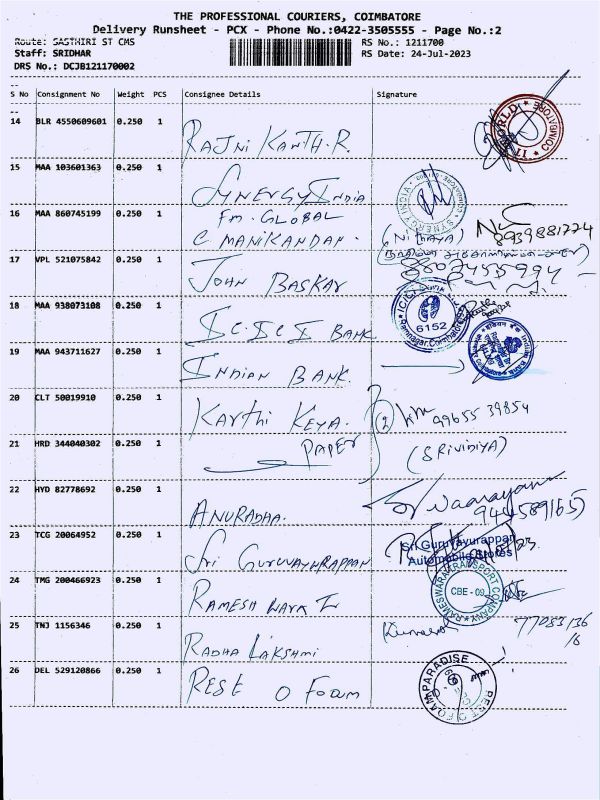 THE PROFESSIONAL COURIERS, COIMBATORE
Delivery Runsheet - PCX - Phone No.:0422-3505555 - Page No.:2
Route: SASTHIRI ST CMS RS No.: 1211700
Staff: SRIDHAR RS Date: 24-Jul-2023
DRS No.: DCJB121170002
S No Consignment No Weight PCS Consignee Details Signature
14 BLR 4550609601 0.250 1 RAJNI KANTH.R.
WORLD COIMBATORE
15 MAA 103601363 0.250 1 SYNERGY INDIA
SYNERGY INDIA
16 MAA 860745199 0.250 1 FM. GLOBAL
C MANIKANDAN. (NITHAYA) 8939881224
17 VPL 521075842 0.250 1 JOHN BASKAY
18 MAA 938073108 0.250 1 ICICI BANK
ICICI 6152 Ramnagar, Coimbatore
19 MAA 943711627 0.250 1 INDIAN BANK.
20 CLT 50019910 0.250 1 KARTHI KEYA. 2 99655 39854
21 HRD 344040302 0.250 1 PAPER (SRIVIDIYA)
22 HYD 82778692 0.250 1 ANURADHA. 944589165
23 TCG 20064952 0.250 1 Sri GURUVAYURAPPAN
Sri Guruvayurappan
Automobile Stores
24 TMG 200466923 0.250 1 RAMESH WARA T
RAMESWARA TRANSPORT COMPANY CBE - 09
25 TNJ 1156346 0.250 1 RADHA LAKSHMI Kumaresh
26 DEL 529120866 0.250 1 REST O FOAM
REST O FOAM PARADISE